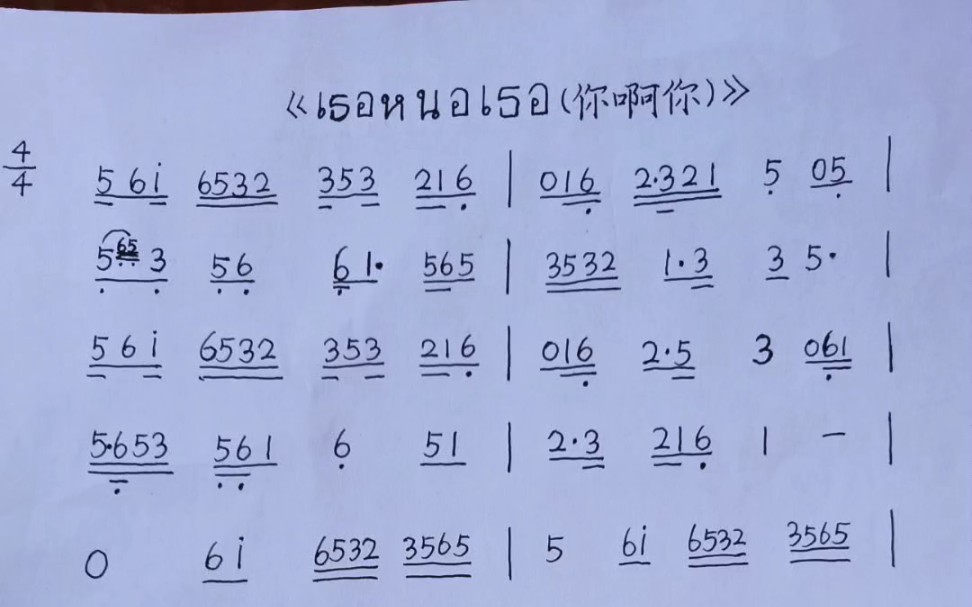 《เธอหนอเธอ(你啊你)》
4/4 5 6i 6532 353 216 | 016 2·321 5 05 |
5 65 3 56 61· 565 | 3532 1·3 3 5· |
561 6532 353 216 | 016 2·5 3 061 |
5·653 561 6 51 | 2·3 216 1 — |
0 6i 6532 3565 | 5 6i 6532 3565 |